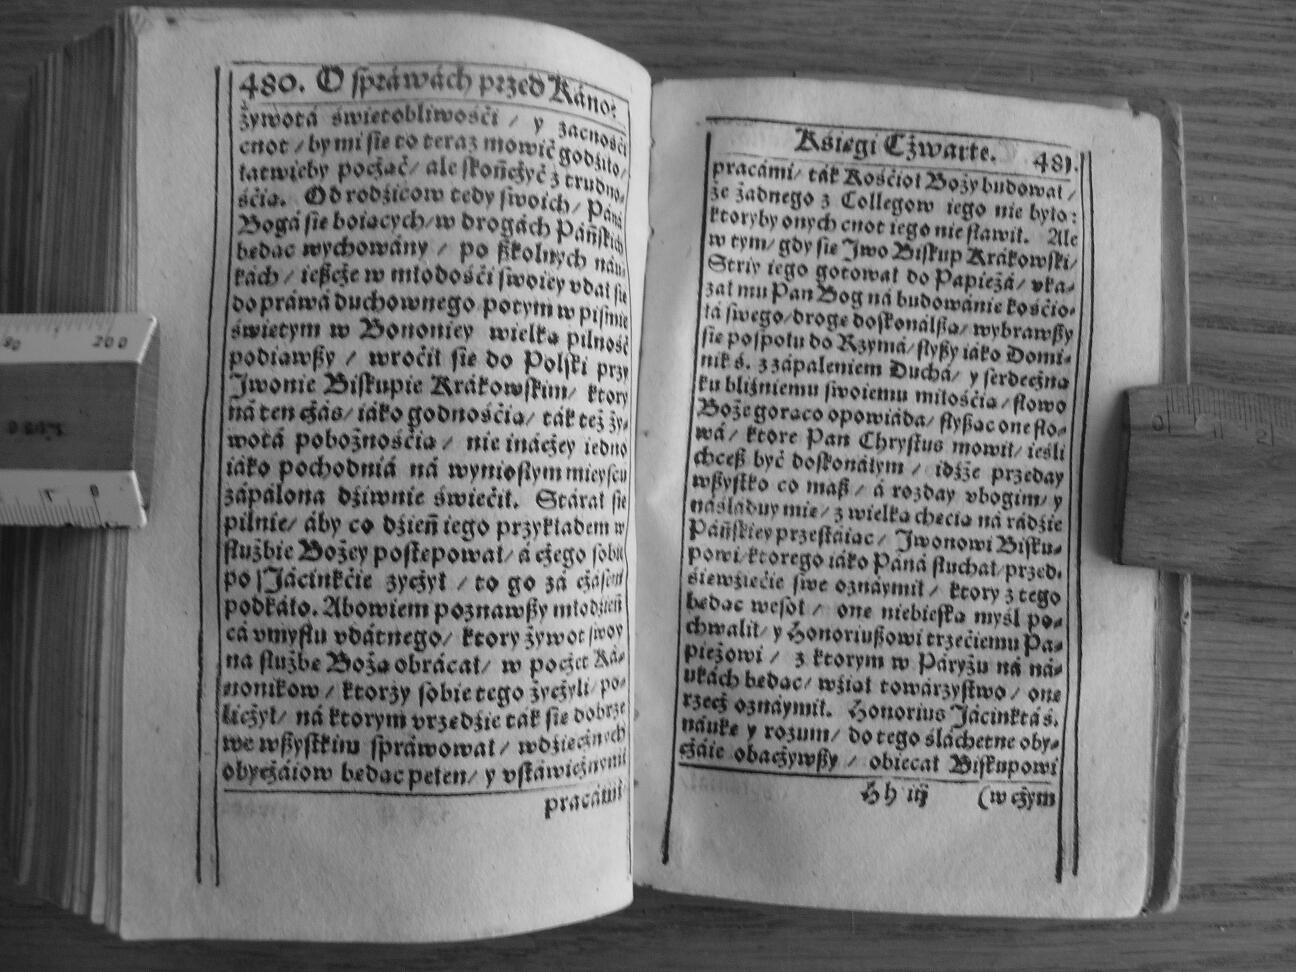 480. O spráwách przed Káno⸗
żywotá świetobliwośći / y zacnośći
cnot / by mi sie to teraz mowić godźiło /
łatwieby począć / ale skończyć z trudno⸗
śćia. Od rodźicow tedy swoich / Páná
Bogá sie boiacych / w drogách Páńskich
bedac wychowány / po szkolnych náu⸗
kách / ieszcze w młodośći swoiey vdał sie
do práwá duchownego potym w piśmie
świetym w Bononiey wielka pilność
podiawszy / wroćił sie do Polski przy
Jwonie Biskupie Krákowskim / ktory
ná ten czás / iáko godnośćia / ták też ży⸗
wotá pobożnośćia / nie ináczey iedno
iáko pochodniá ná wyniosłym mieyscu
zápalona dźiwnie świećił. Stárał sie
pilnie / áby co dźień iego przykładem w
służbie Bożey postepował / á czego sobie
po Jácinkćie życzył / to go zá czásem
podkáło. Abowiem poznawszy młodźień
cá vmysłu vdátnego / ktory żywot swoy
na służbe Boża obrácał / w poczet Ká⸗
nonikow / ktorzy sobie tego życzyli / po⸗
liczył / ná ktorym vrzedźie ták sie dobrze
we wszystkim spráwował / wdźiecznych
obyczáiow bedac pełen / y vstáwicznymi
pracámi
Ksiegi Czwarte. 481.
pracámi / ták Kośćioł Boży budował /
że żadnego z Collegow iego nie było :
ktoryby onych cnot iego nie sławił. Ale
w tym / gdy sie Jwo Biskup Krákowski /
Stryi iego gotował do Papieżá / vka⸗
zał mu Pan Bog ná budowánie kośćio⸗
łá swego / droge doskonálsza / wybrawszy
sie pospołu do Rzymá / słyszy iáko Domi⸗
nik ś. z zápaleniem Duchá / y serdeczna
ku bliźniemu swoiemu miłośćia / słowo
Boże goraco opowiáda / słyszac one sło⸗
wá / ktore Pan Chrystus mowił / ieśli
chcesz być doskonáłym / idźże przeday
wszystko co masz / á rozday vbogim / y
náśláduy mie / z wielka checia ná rádźie
Páńskiey przestáiac / Jwonowi Bisku⸗
powi / ktorego iáko Páná słuchał / przed⸗
śiewźiećie swe oznáymił / ktory z tego
bedac wesoł / one niebieska myśl po⸗
chwalił / y Honoriuszowi trzećiemu Pa⸗
pieżowi / z ktorym w Páryżu ná ná⸗
ukách bedac / wźiał towárzystwo / one
rzecz oznáymił. Honorius Jácinktá ś.
náuke y rozum / do tego śláchetne oby⸗
czáie obaczywszy / obiecał Biskupowi
Hh iij (w czym